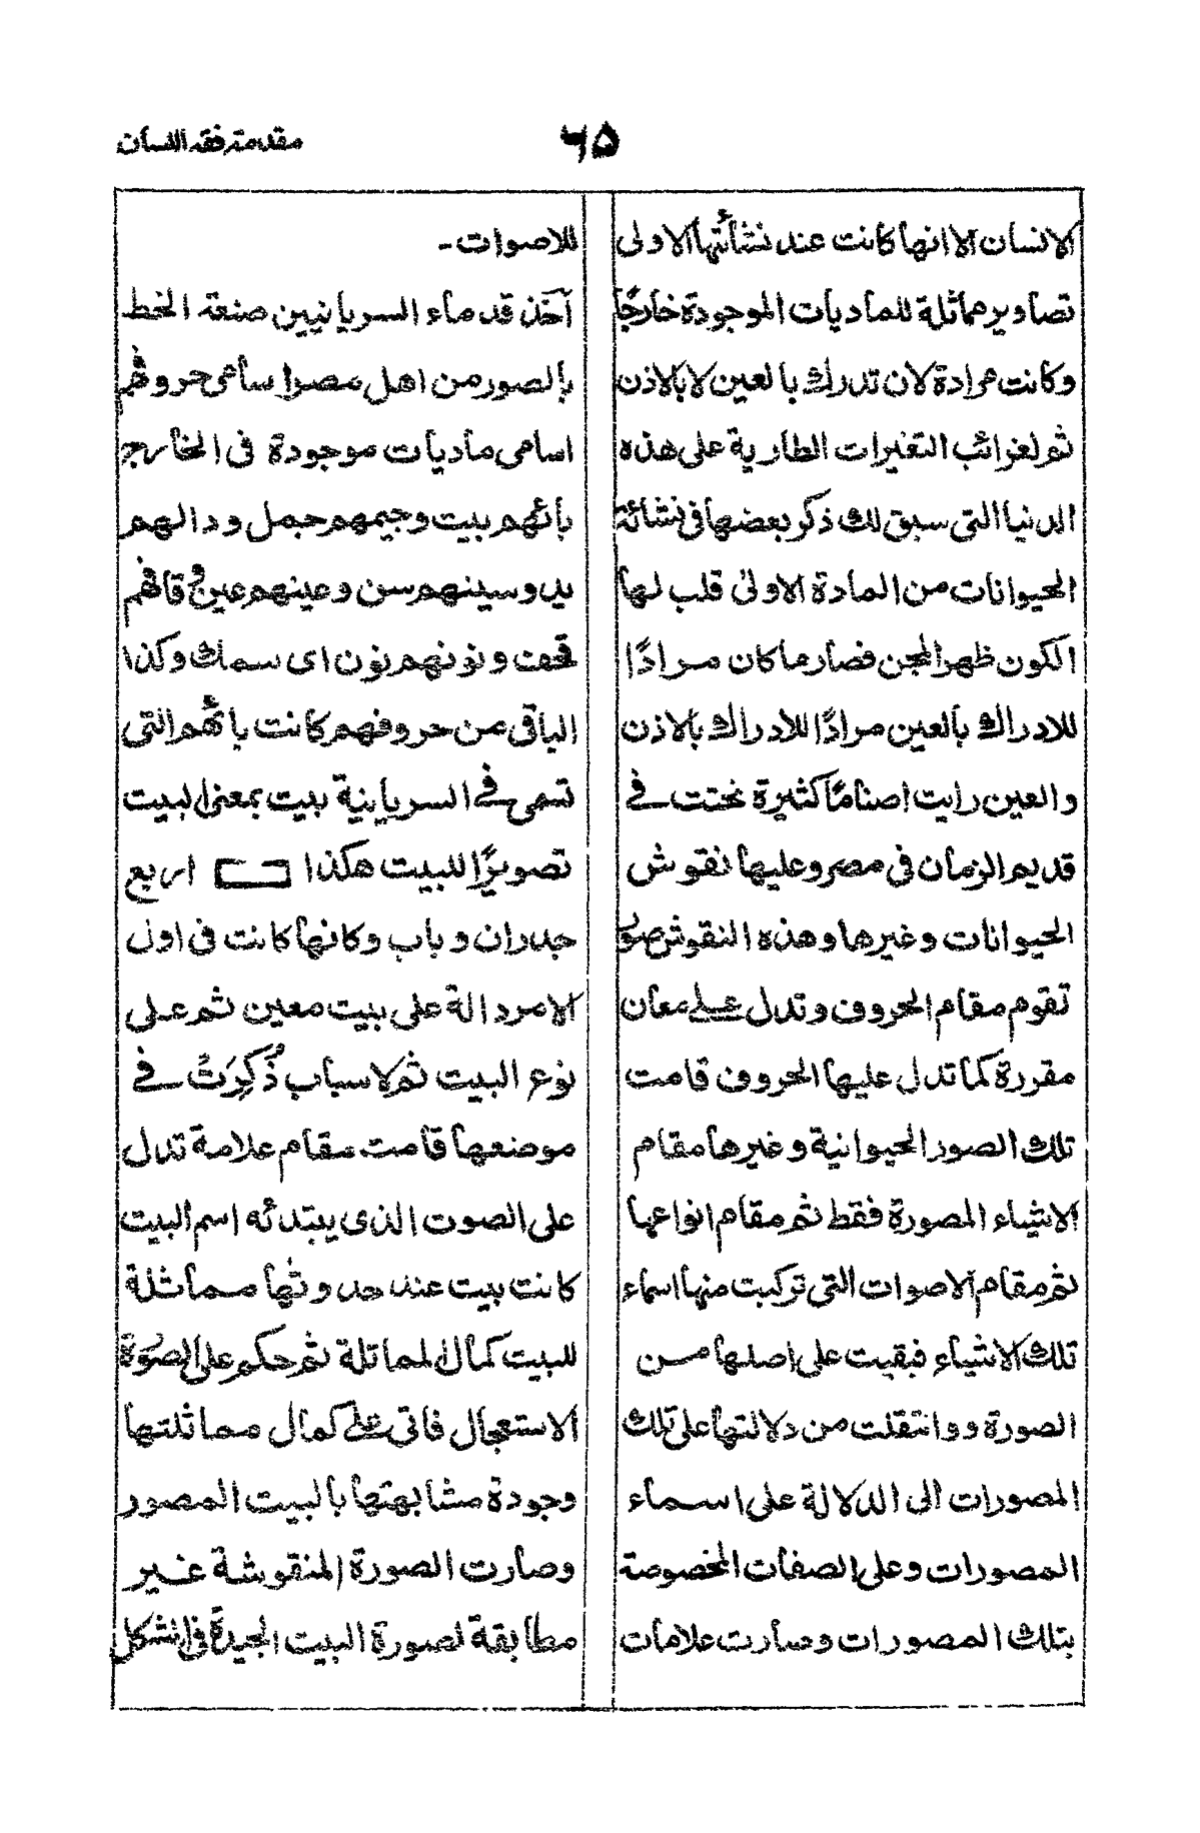 مقدمة فقه اللسان
٦٥
الانسان الا انها كانت عند نشأتها الاولى
تصاوير مماثلة للماديات الموجودة خارجًا
وكانت مرادة لان تدرك بالعين لا بالاذن
ثم لغرائب التغيرات الطارية على هذه
الدنيا التى سبق لك ذكر بعضها فى نشائة
الحيوانات من المادة الاولى قلب لها
الكون ظهر المجن فصار ما كان مرادًا
للادراك بالعين مرادًا للادراك بالاذن
والعين رايت اصنامًا كثيرة نحتت فى
قديم الزمان فى مصر وعليها نقوش
الحيوانات وغيرها وهذه النقوش صور
تقوم مقام الحروف وتدل على معان
مقررة كما تدل عليها الحروف قامت
تلك الصور الحيوانية وغيرها مقام
الاشياء المصورة فقط ثم مقام انواعها
ثم مقام الاصوات التى تركبت منها اسماء
تلك الاشياء فبقيت على اصلها من
الصورة ووانتقلت من دلالتها على تلك
المصورات الى الدلالة على اسماء
المصورات وعلى الصفات المخصوصة
بتلك المصورات وصارت علامات
للاصوات -
آخذ قدماء السريانيين صنعة الخط
بالصور من اهل مصر اسامى حروفهم
اسامى ماديات موجودة فى الخارج
بائهم بيت وجيمهم جمل ودالهم
يد وسينهم سن وعينهم عين وقافهم
قحف ونونهم نون اى سمك وكذا
الباقى من حروفهم كانت بائهم التى
تسمى فى السريانية بيت بمعنى البيت
تصويرًا للبيت هكذا اربع
جدران وباب وكانها كانت فى اول
الامر دالة على بيت معين ثم على
نوع البيت ثم لاسباب ذُكِرَتْ فى
موضعها قامت مقام علامة تدل
على الصوت الذى يبتدئه اسم البيت
كانت بيت عند حدوثها مماثلة
للبيت كمال المماثلة ثم حكم على الصورة
الاستعجال فاتى على كمال مماثلتها
وجودة مشابهتها بالبيت المصور
وصارت الصورة المنقوشة غير
مطابقة لصورة البيت الجيدة فى الشكل